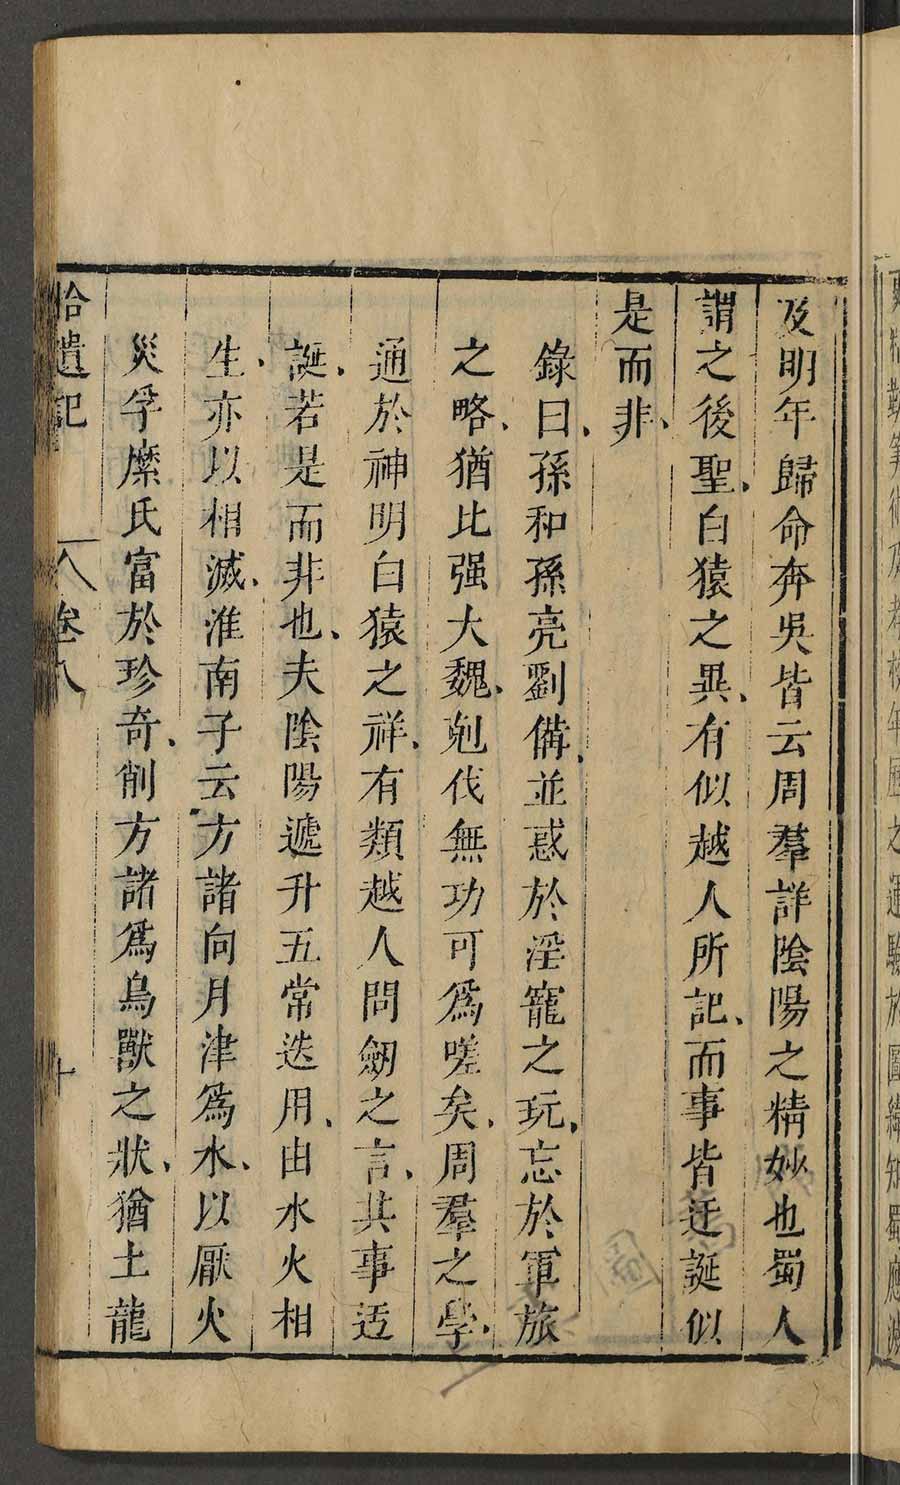 及明年歸命奔吳皆云周羣詳陰陽之精妙也蜀人
謂之後聖、白猿之異、有似越人所記、而事皆迂誕似
是而非、
錄曰、孫和孫亮劉備、並惑於淫寵之玩、忘於軍旅
之略、猶比强大魏、剋伐無功可爲嗟矣、周羣之學、
通於神明白猿之祥、有類越人問劒之言、其事迂
誕、若是而非也、夫陰陽遞升五常迭用、由水火相
生、亦以相滅、淮南子云方諸向月津爲水、以厭火
災孚糜氏富於珍奇、削方諸爲鳥獸之狀、猶土龍
拾遺記 卷八 十